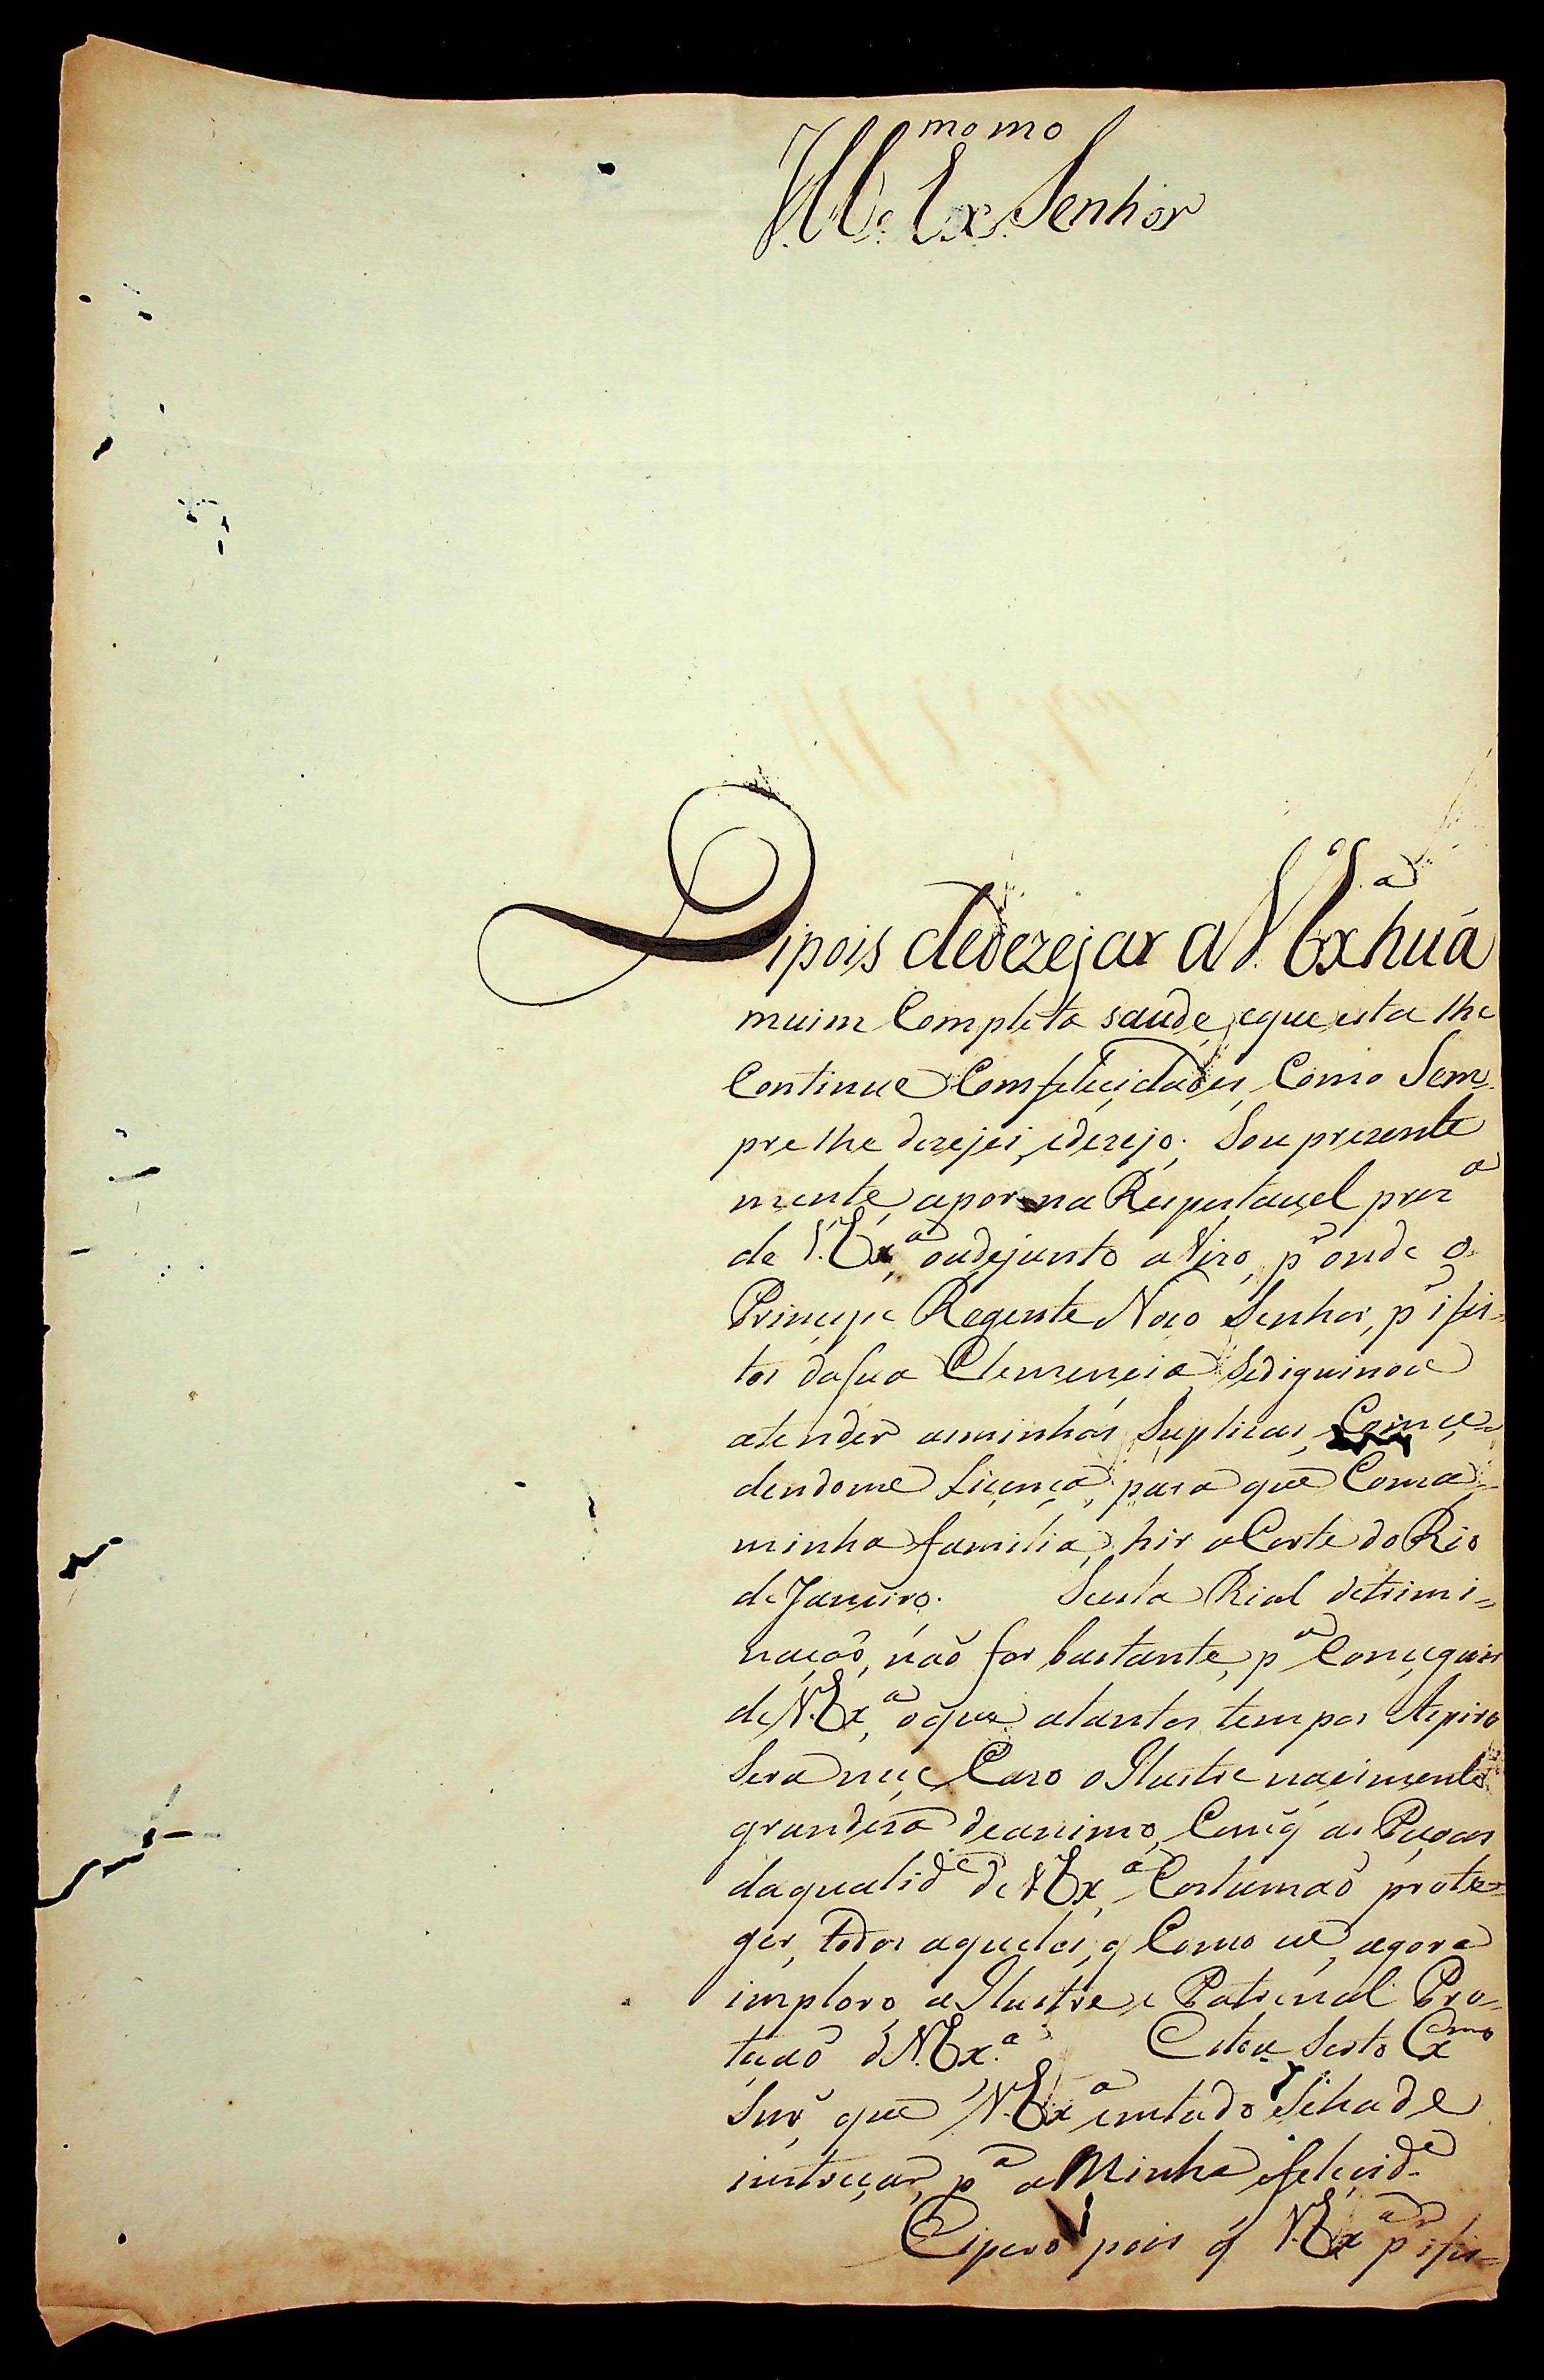 Ill.mo Ex.mo Senhor
Dipois dedezejar a V. Ex.a huá
muim Completa saude, eque esta lhe
Continue Comfelicidades, Como Sem-
pre lhe dezejei, edezejo; Sou prezente
mente, apor na Respeitavel prez.a
de V. Ex.a, oadejunto aViso, p.r onde o
Principe Regente Noço Senhor, p.r ifei-
tos dasua Clemencia, sediguinou
atender asminhas Suplicas, Comce-
dendome Licença, para que Coma
minha familia, hir aCorte do Rio
de Janeiro. Seesta Rial detrimi-
naçaõ, naõ for bastante, p.a Conceguir
de V. Ex.a, oque atantos tempos Aspiro
Sera neçe Cazo o Ilustre nacimento
grandeza deanimo, Comq̃ as Peçoas
daqualid.e de V. Ex.a, Costumaõ prote-
ger, todos aqueles, q̃ Como eu, agora
imploro, a Ilustre, e Patrenal Pro-
teçaõ d V. Ex.a Estou Serto Ex.mo
Snr̃, que V. Ex.a emtudo Sehade
intreçar, p.a aMinha felicid.e
Espero pois q̃ V. Ex.a p.r ifei-